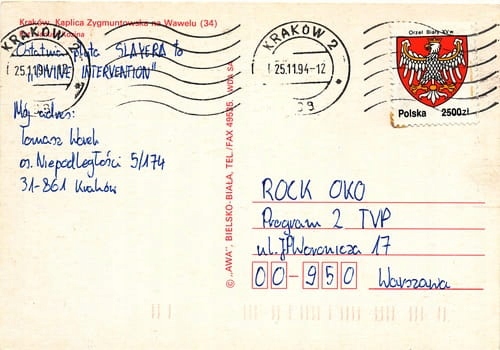 Kraków. Kaplica Zygmuntowska na Wawelu (34)
Ostatnia płyta SLAYERA to
"DIVINE INTERVENTION"
Mój adres:
Tomasz
os. Niepodległości 5/174
31-861 Kraków
KRAKÓW 2
25.11.94-12
KRAKÓW 2
25.11.94-12
Orzeł Biały XVw
Polska 2500zł
© „AWA", BIELSKO-BIAŁA, TEL./FAX 49535.
ROCK OKO
Program 2 TVP
ul. JP Woronicza 17
00-950 Warszawa